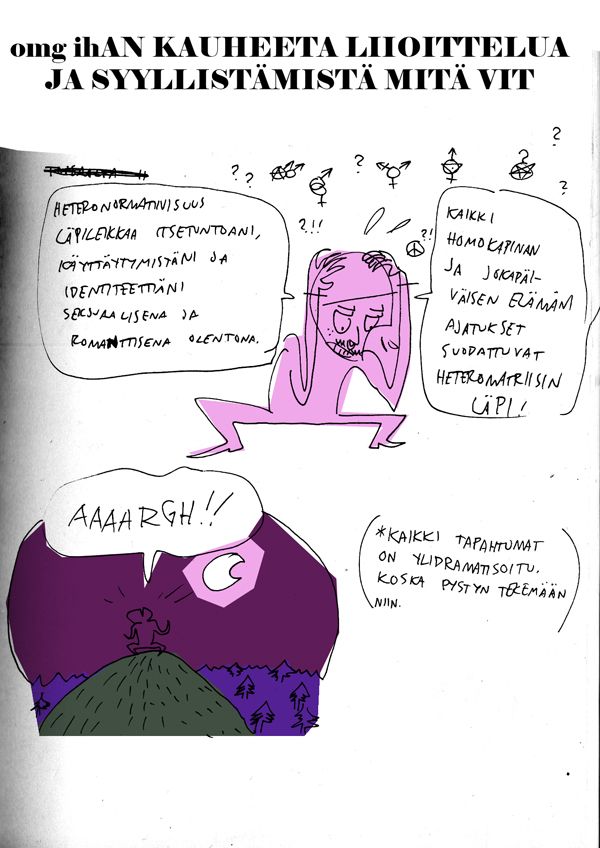 omg ihAN KAUHEETA LIIOITTELUA
JA SYYLLISTÄMISTÄ MITÄ VIT
HETERONORMATIIVISUUS
LÄPILEIKKAA ITSETUNTOANI,
KÄYTTÄYTYMISTÄNI JA
IDENTITEETTIÄNI
SEKSUAALISENA JA
ROMANTTISENA OLENTONA.
? ? ? ? ? ?
?!!
?!
KAIKKI
HOMOKAPINAN
JA JOKAPÄI-
VÄISEN ELÄMÄNI
AJATUKSET
SUODATTUVAT
HETEROMATRIISIN
LÄPI!
AAAARGH!!
(*KAIKKI TAPAHTUMAT
ON YLIDRAMATISOITU,
KOSKA PYSTYN TEKEMÄÄN
NIIN.)